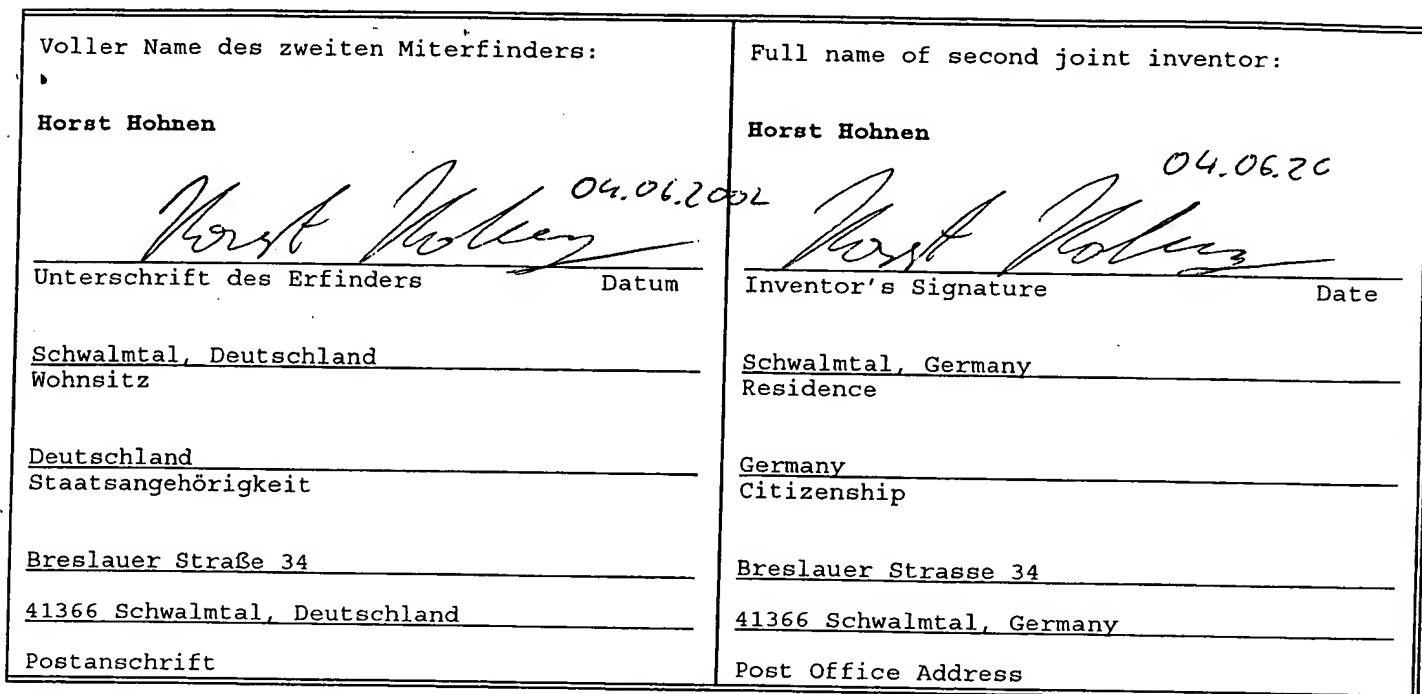 Voller Name des zweiten Miterfinders:
Horst Hohnen
Horst Hohnen 04.06.2002
Unterschrift des Erfinders Datum
Schwalmtal, Deutschland
Wohnsitz
Deutschland
Staatsangehörigkeit
Breslauer Straße 34
41366 Schwalmtal, Deutschland
Postanschrift
Full name of second joint inventor:
Horst Hohnen
04.06.20
Horst Hohnen
Inventor's Signature Date
Schwalmtal, Germany
Residence
Germany
Citizenship
Breslauer Strasse 34
41366 Schwalmtal, Germany
Post Office Address